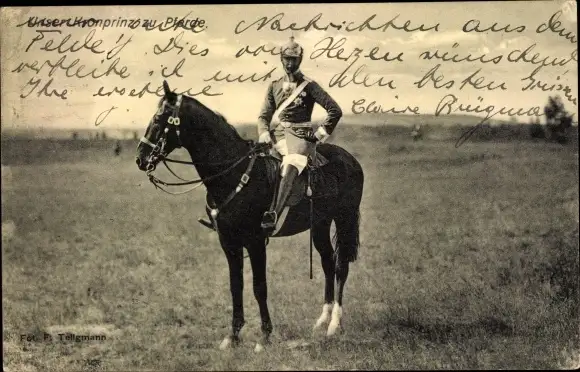 Unser Kronprinz zu Pferde.
Nachrichten aus dem
Felde? Dies von Herzen wünschend
verbleibe ich mit den besten Grüssen
Ihre ergebene
Claire Brügmann
Fot. F. Tellgmann